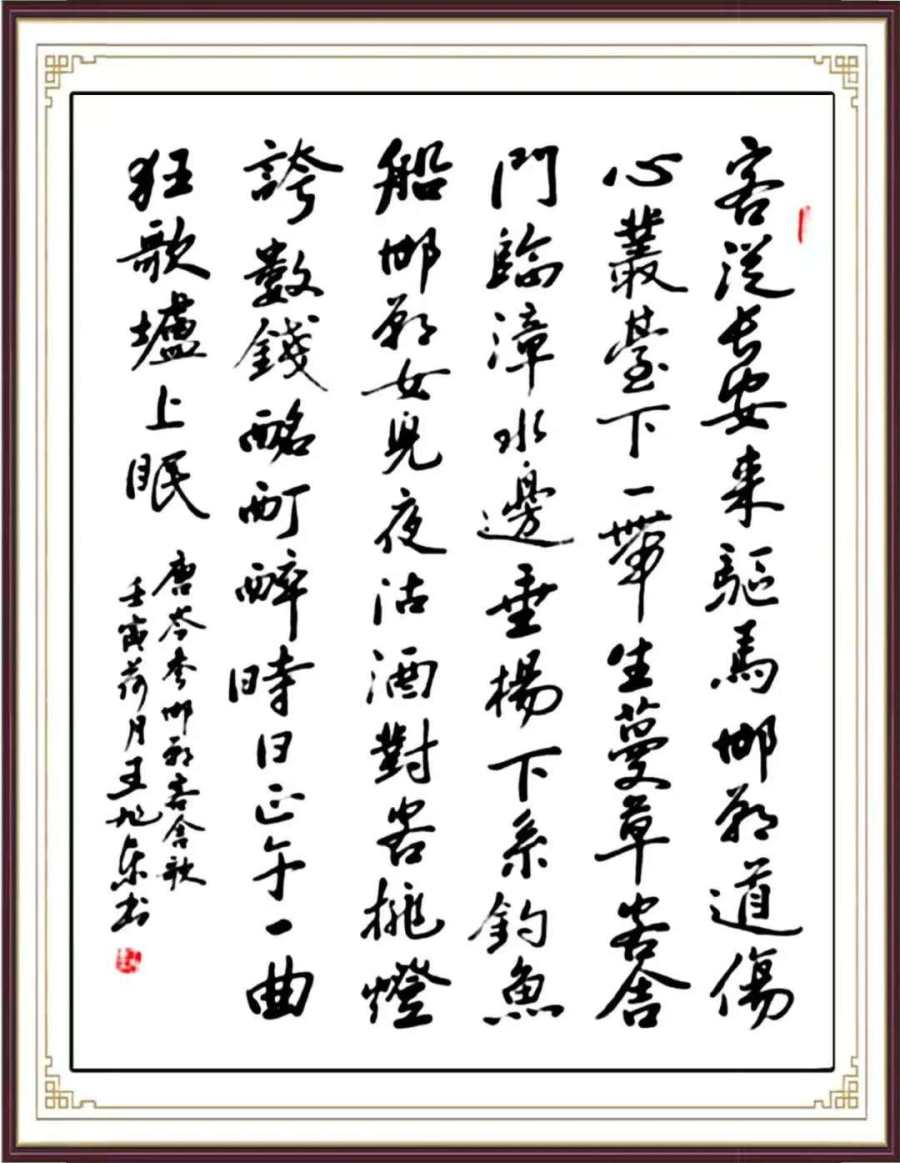 客從长安来驅馬邯鄲道傷
心叢臺下一帶生蔓草客舍
門臨漳水邊垂楊下系釣魚
船邯鄲女兒夜沽酒對客挑燈
誇數錢酩酊醉時日正午一曲
狂歌壚上眠
唐岑參邯鄲客舍歌
壬寅荷月王旭东书